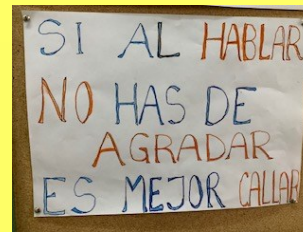 SI AL HABLAR
NO HAS DE
AGRADAR
ES MEJOR CALLAR